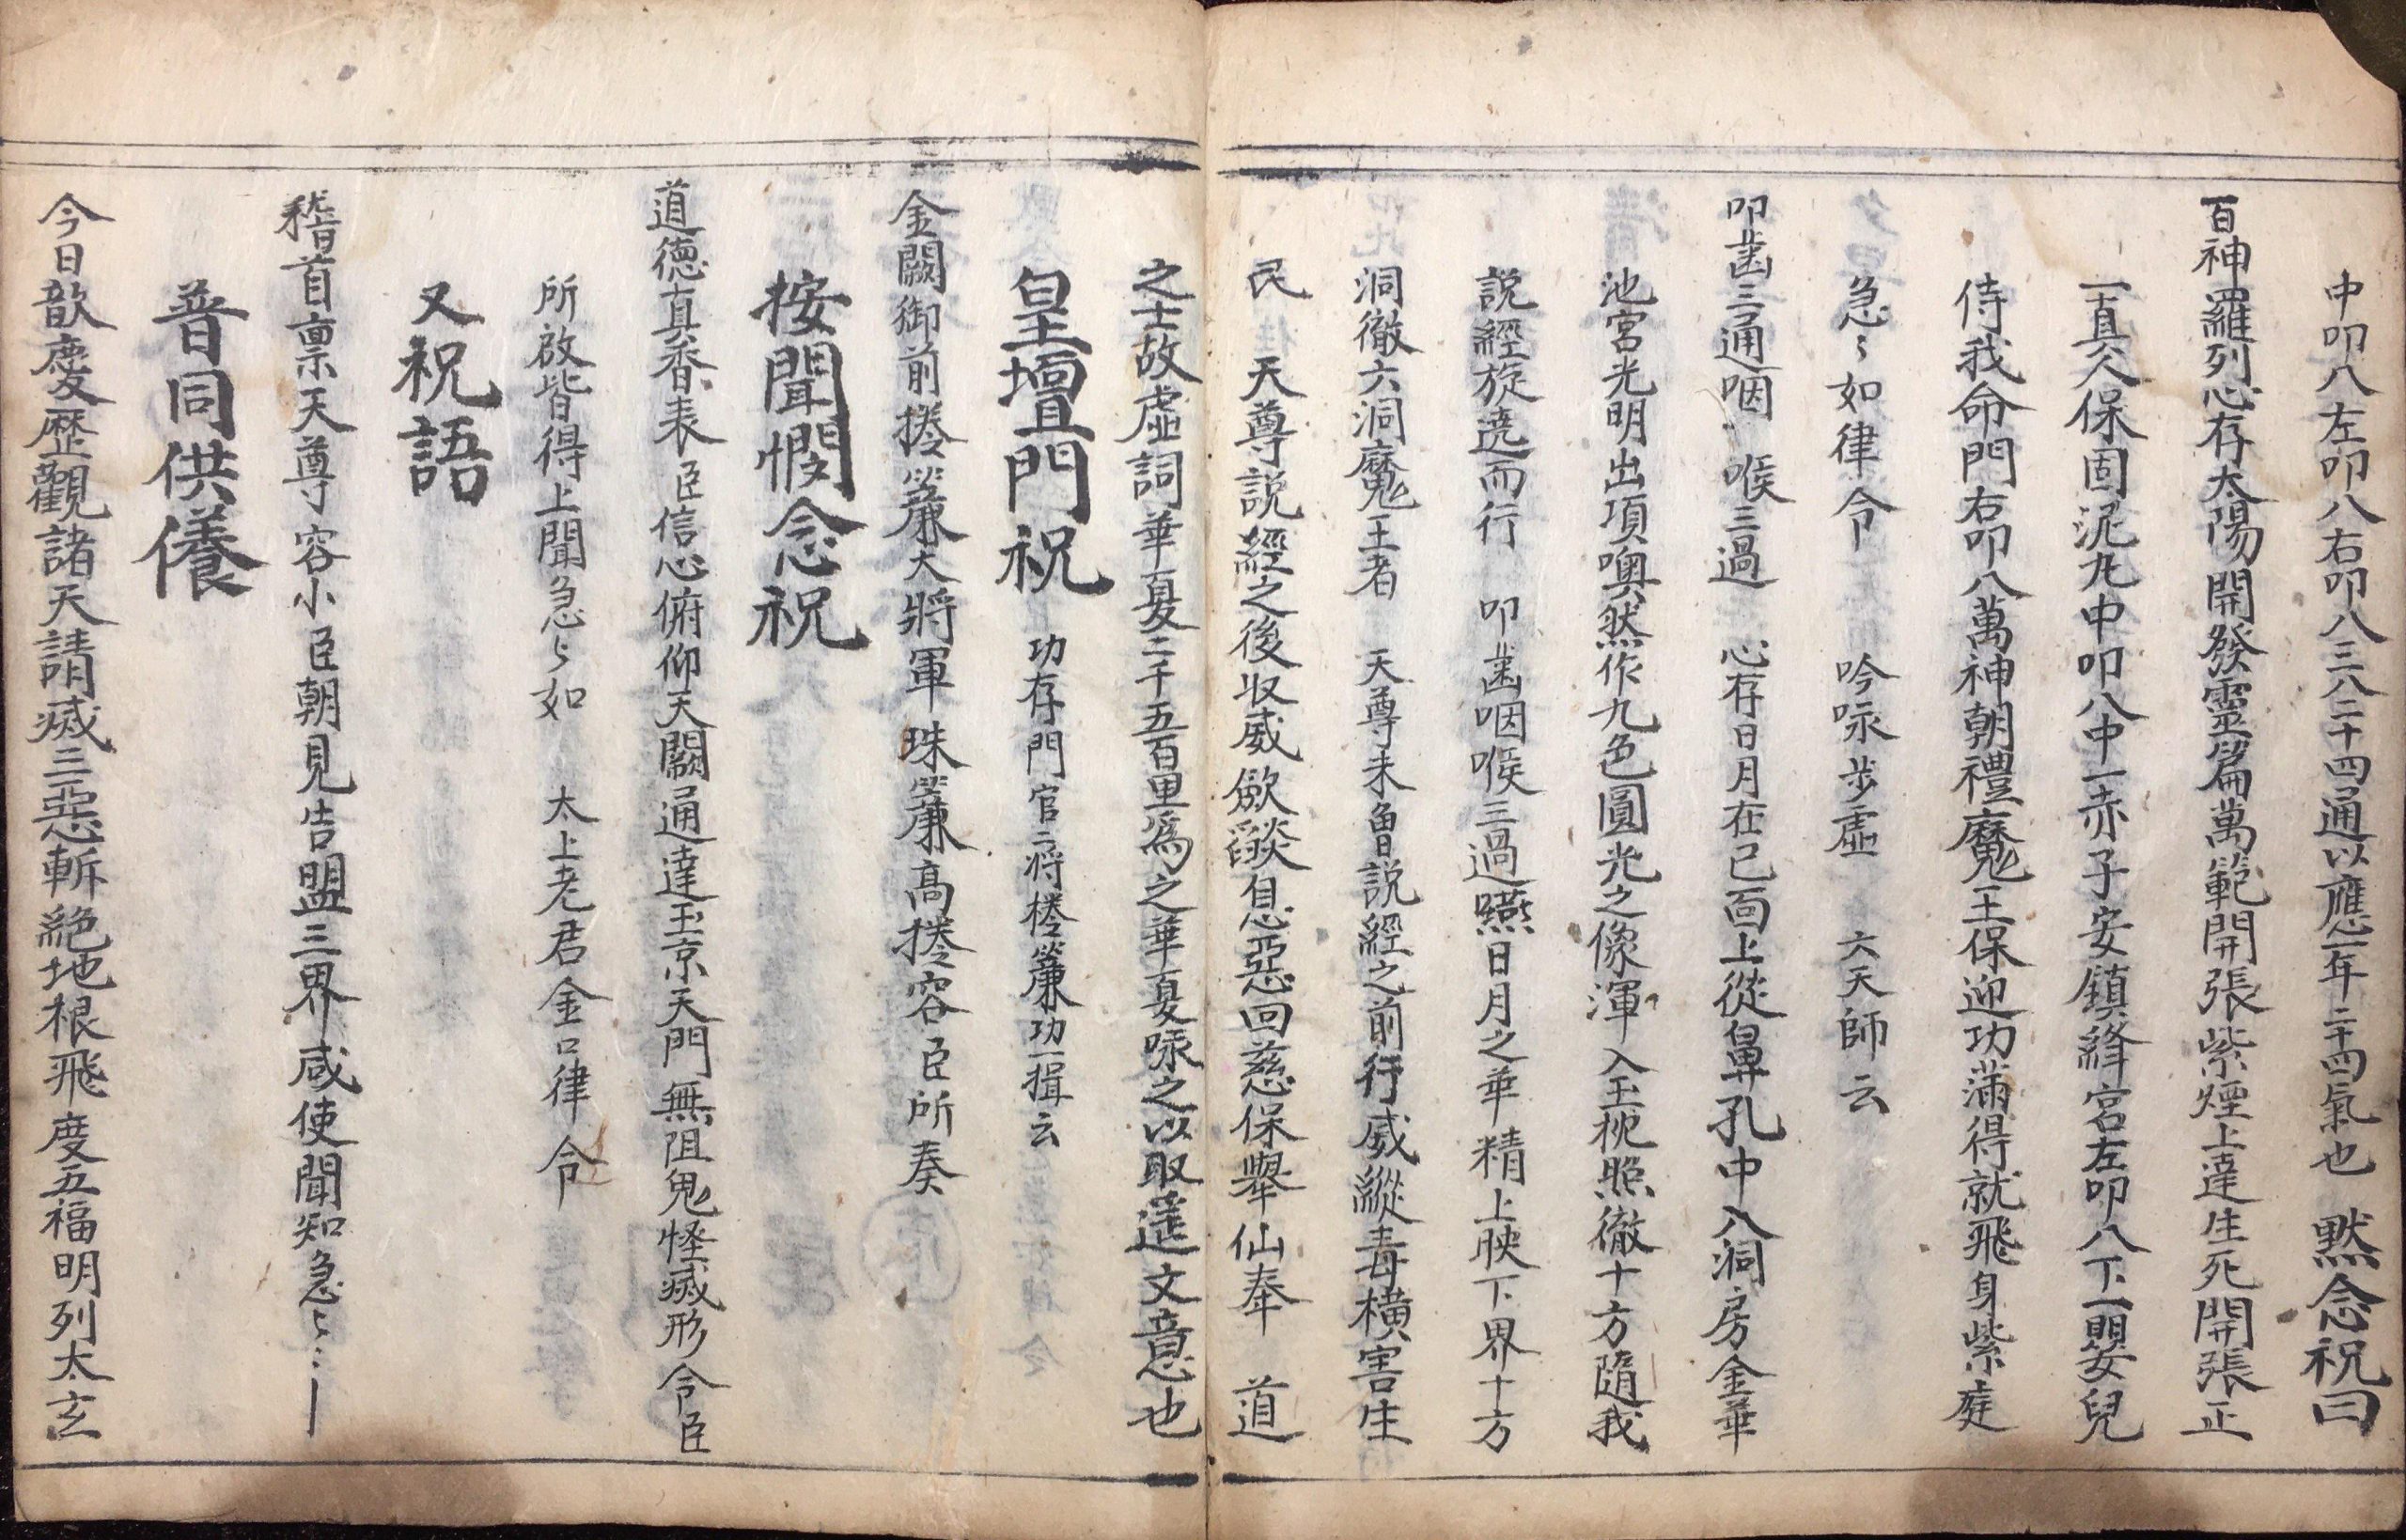 中叩八左叩八右叩八三八二十四通以應一年二十四氣也　默念祝曰
百神羅列心存太陽開發靈篇萬範開張紫煙上達生死開張正
一真人保固泥丸中叩八中一赤子安鎮絳宮左叩八下一嬰兒
侍我命門右叩八萬神朝禮魔王保迎功滿得就飛身紫庭
急〻如律令　吟咏步虛　六天師云
叩齒三通咽喉三過　心存日月在已面上從鼻孔中入洞房金華
池宮光明出項噢然作九色圓光之像渾入玉枕照徹十方隨我
說經旋遶而行　叩齒咽喉三過嚥日月之華精上映下界十方
洞徹六洞魔王者　天尊未曾說經之前行威縱毒橫害生
民　天尊説經之後収威歛燄息惡回慈保舉仙奉　道
之士故虛詞華夏二千五百里爲之華夏咏之以取遥文意也
皇壇門祝　功存門官二将捲簾功一揖云
金闕御前捲簾大將軍珠簾高捲容臣所奏
按聞憫念祝
道德真香表臣信心俯仰天闕通達玉京天門無阻鬼怪滅形令臣
所啟皆得上聞急〻如　太上老君金口律令
又祝語
稽首禀天尊容小臣朝見告盟三界咸使聞知急〻
普同供儀
今日歆慶歷觀諸天請滅三惡斬絕地根飛度五福明列太玄